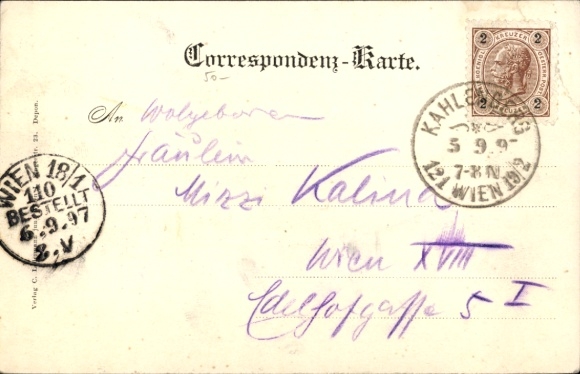 Correspondenz-Karte.
50-
An Wolgeboren
Fräulein
Mizzi Kalina
Wien XVIII
Edelhofgasse 5 I
2 KREUZER 2
2 2
KAHLENBERG
5 9 97
7-8 N
121 WIEN 19/2
WIEN 18/1
110
BESTELLT
6.9.97
8.V
Verlag C.
23. Depon.